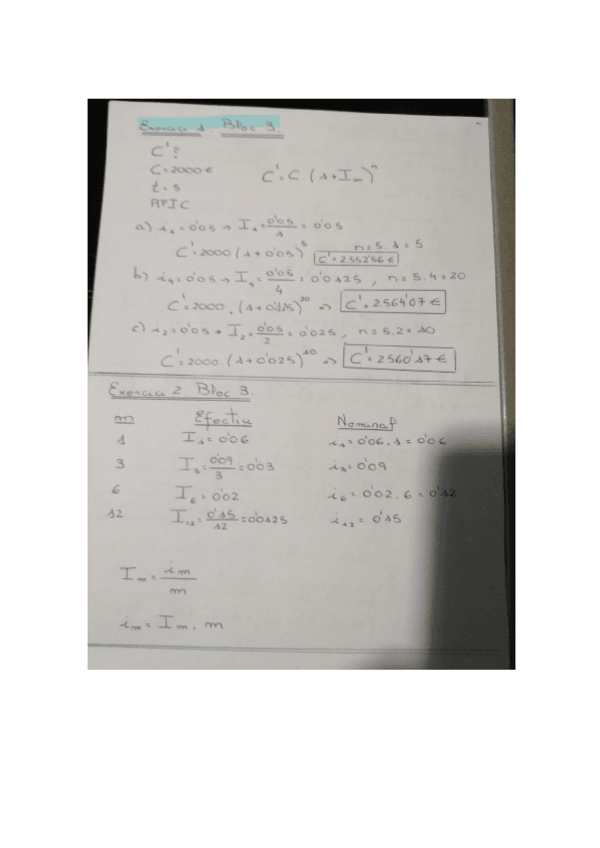 Exercici 1. Bloc 3.
C'?
C=2000€
t=5
C'=C.(1+Im)^n
a) i₁=0'05 → I₁=0'05/1=0'05
n=5.1=5
C'=2000(1+0'05)^5 C'=2552'56€
b) i₄=0'05→I₄=0'05/4=0'0125, n=5.4=20
C'=2000.(1+0'0125)^20 => C'=2564'07€
c) i₂=0'05→I₂=0'05/2=0'025, n=5.2=10
C'=2000.(1+0'025)^10 => C'=2560'17€
Exercici 2. Bloc 3
m Efectiu Nominal
1 I₁=0'06 i₁=0'06.1=0'06
3 I₃=0'09/3=0'03 i₃=0'09
6 I₆=0'02 i₆=0'02.6=0'12
12 I₁₂=0'15/12=0'0125 i₁₂=0'15
Im=im/m
im=Im.m